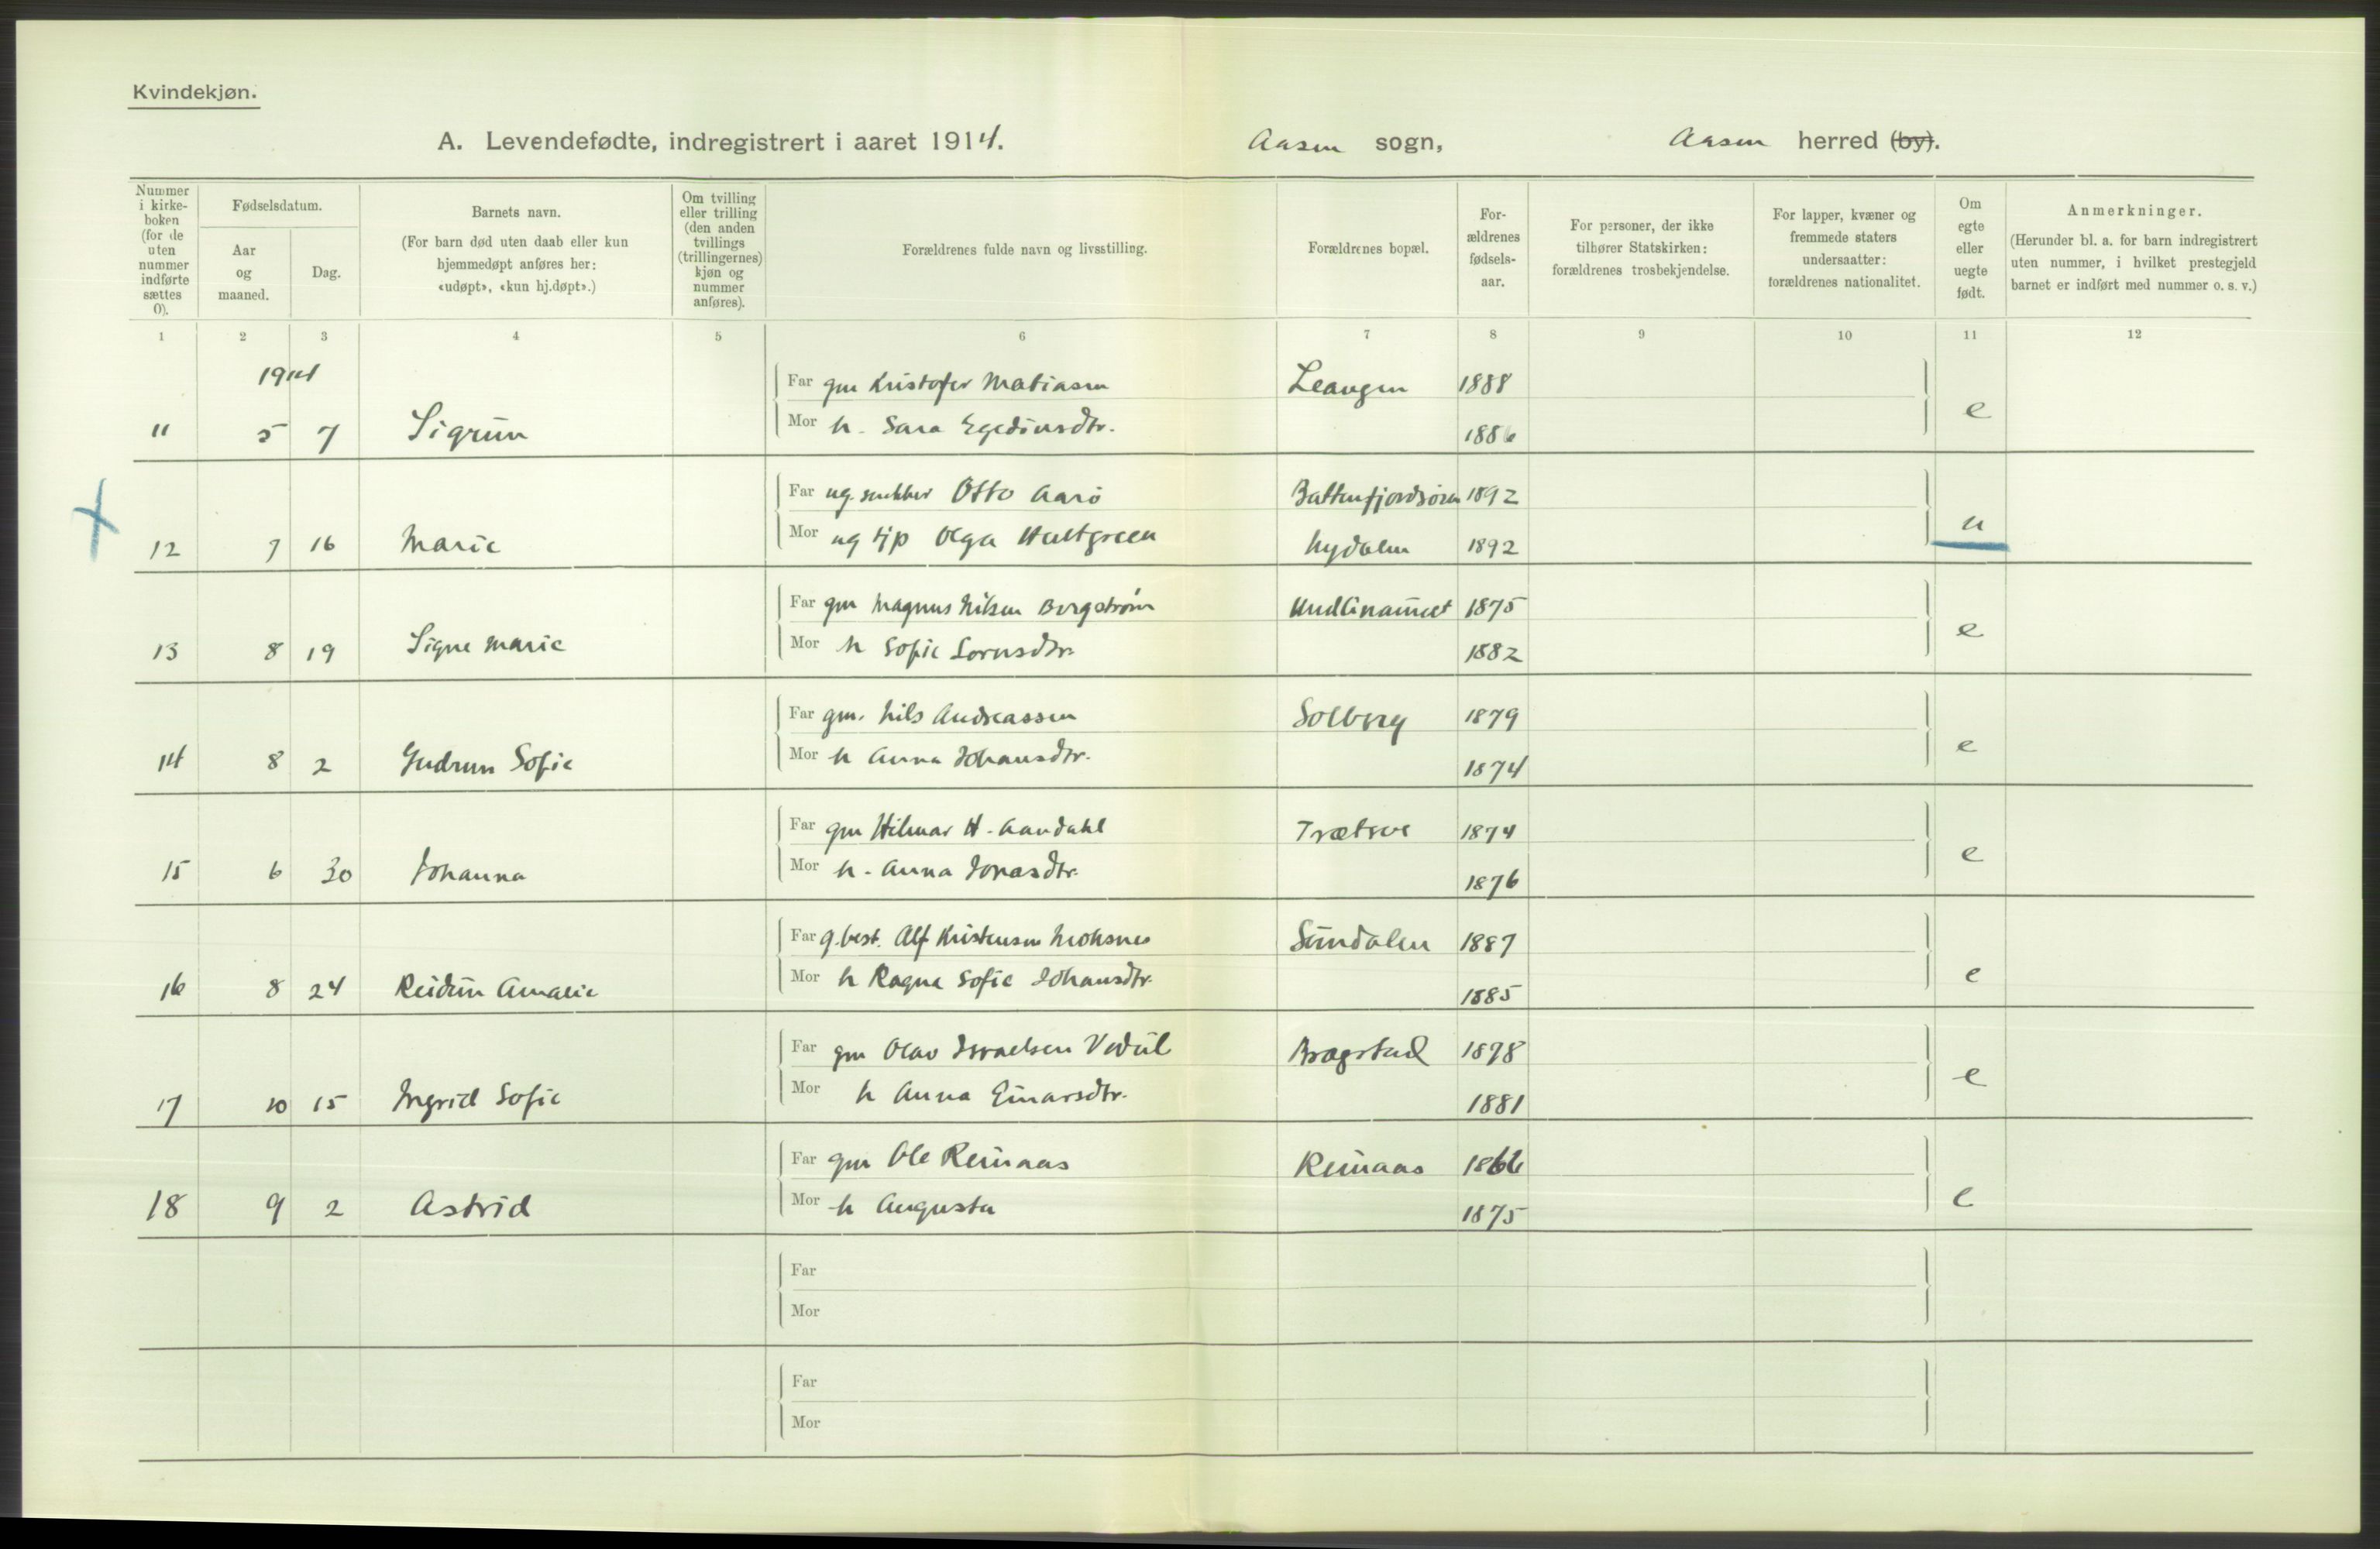 Kvindekjøn.
A. Levendefødte, indregistrert i aaret 1914. Aasen sogn, Aasen herred (by).
Nummer i kirke-boken (for de uten nummer indførte sættes 0).
Fødselsdatum.
Aar og maaned.
Dag.
Barnets navn.
(For barn død uten daab eller kun hjemmedøpt anføres her: «udøpt», «kun hj.døpt».)
Om tvilling eller trilling (den anden tvillings (trillingernes) kjøn og nummer anføres).
Forældrenes fulde navn og livsstilling.
Forældrenes bopæl.
For-ældrenes fødsels-aar.
For personer, der ikke tilhører Statskirken: forældrenes trosbekjendelse.
For lapper, kvæner og fremmede staters undersaatter: forældrenes nationalitet.
Om egte eller uegte født.
Anmerkninger.
(Herunder bl. a. for barn indregistrert uten nummer, i hvilket prestegjeld barnet er indført med nummer o. s. v.)
1 2 3 4 5 6 7 8 9 10 11 12
1914
Far gm Kristofer Matiasen Leangen 1888
11 5 7 Sigrun Mor h. Sara Egediusdtr. 1886 e
Far ug. snekker Otto Aarö Battenfjordsøren 1892
12 7 16 Marie Mor ug tjp Olga Hultgreen Nydalen 1892 u
Far gm Magnus Nilsen Bergstrøm 1875
13 8 19 Signe Marie Mor h Sofie Lornsdtr. 1882 e
Far gm. Nils Andreassen Solberg 1879
14 8 2 Gudrun Sofie Mor h Anna Johansdtr. 1874 e
Far gm Hilmar H. Aandahl Trætroe 1874
15 6 30 Johanna Mor h. Anna Jonasdtr. 1876 e
Far g.best. Alf Kristensen Moksnes Sundalen 1887
16 8 24 Reidun Amalie Mor h Ragna Sofie Johansdtr. 1885 e
Far gm Olav Israelsen Vedul Brægstad 1878
17 10 15 Ingrid Sofie Mor h Anna Einarsdtr. 1881 e
Far gm Ole Reinaas Reinaas 1866
18 9 2 Astrid Mor h Augusta 1875 e
Far
Mor
Far
Mor